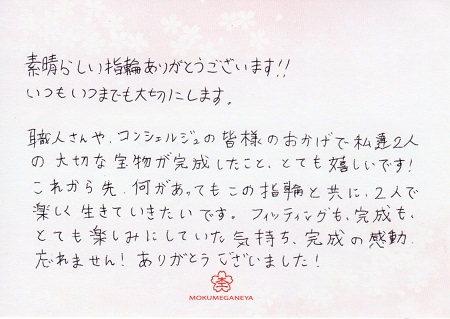 素晴らしい指輪ありがとうございます!!
いつもいつまでも大切にします。
職人さんや、コンシェルジュの皆様のおかげで私達2人
の大切な宝物が完成したこと、とても嬉しいです!
これから先、何があってもこの指輪と共に、2人で
楽しく生きていきたいです。フィッティングも、完成も、
とても楽しみにしていた気持ち、完成の感動、
忘れません!ありがとうございました!
MOKUMEGANEYA